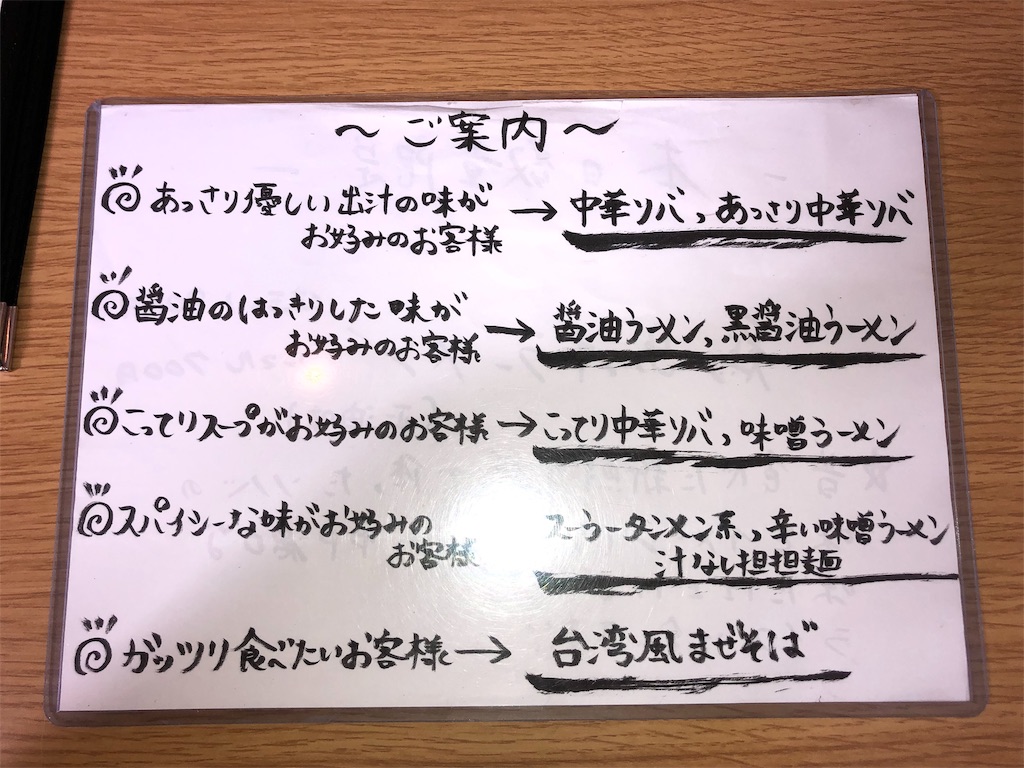 ～ご案内～
あっさり優しい出汁の味が
お好みのお客様
→ 中華ソバ、あっさり中華ソバ
醤油のはっきりした味が
お好みのお客様
→ 醤油ラーメン、黒醤油ラーメン
こってりスープがお好みのお客様 → こってり中華ソバ、味噌ラーメン
スパイシーな味がお好みの
お客様
スーラータンメン系、辛い味噌ラーメン
汁なし担担麺
ガッツリ食べたいお客様 → 台湾風まぜそば